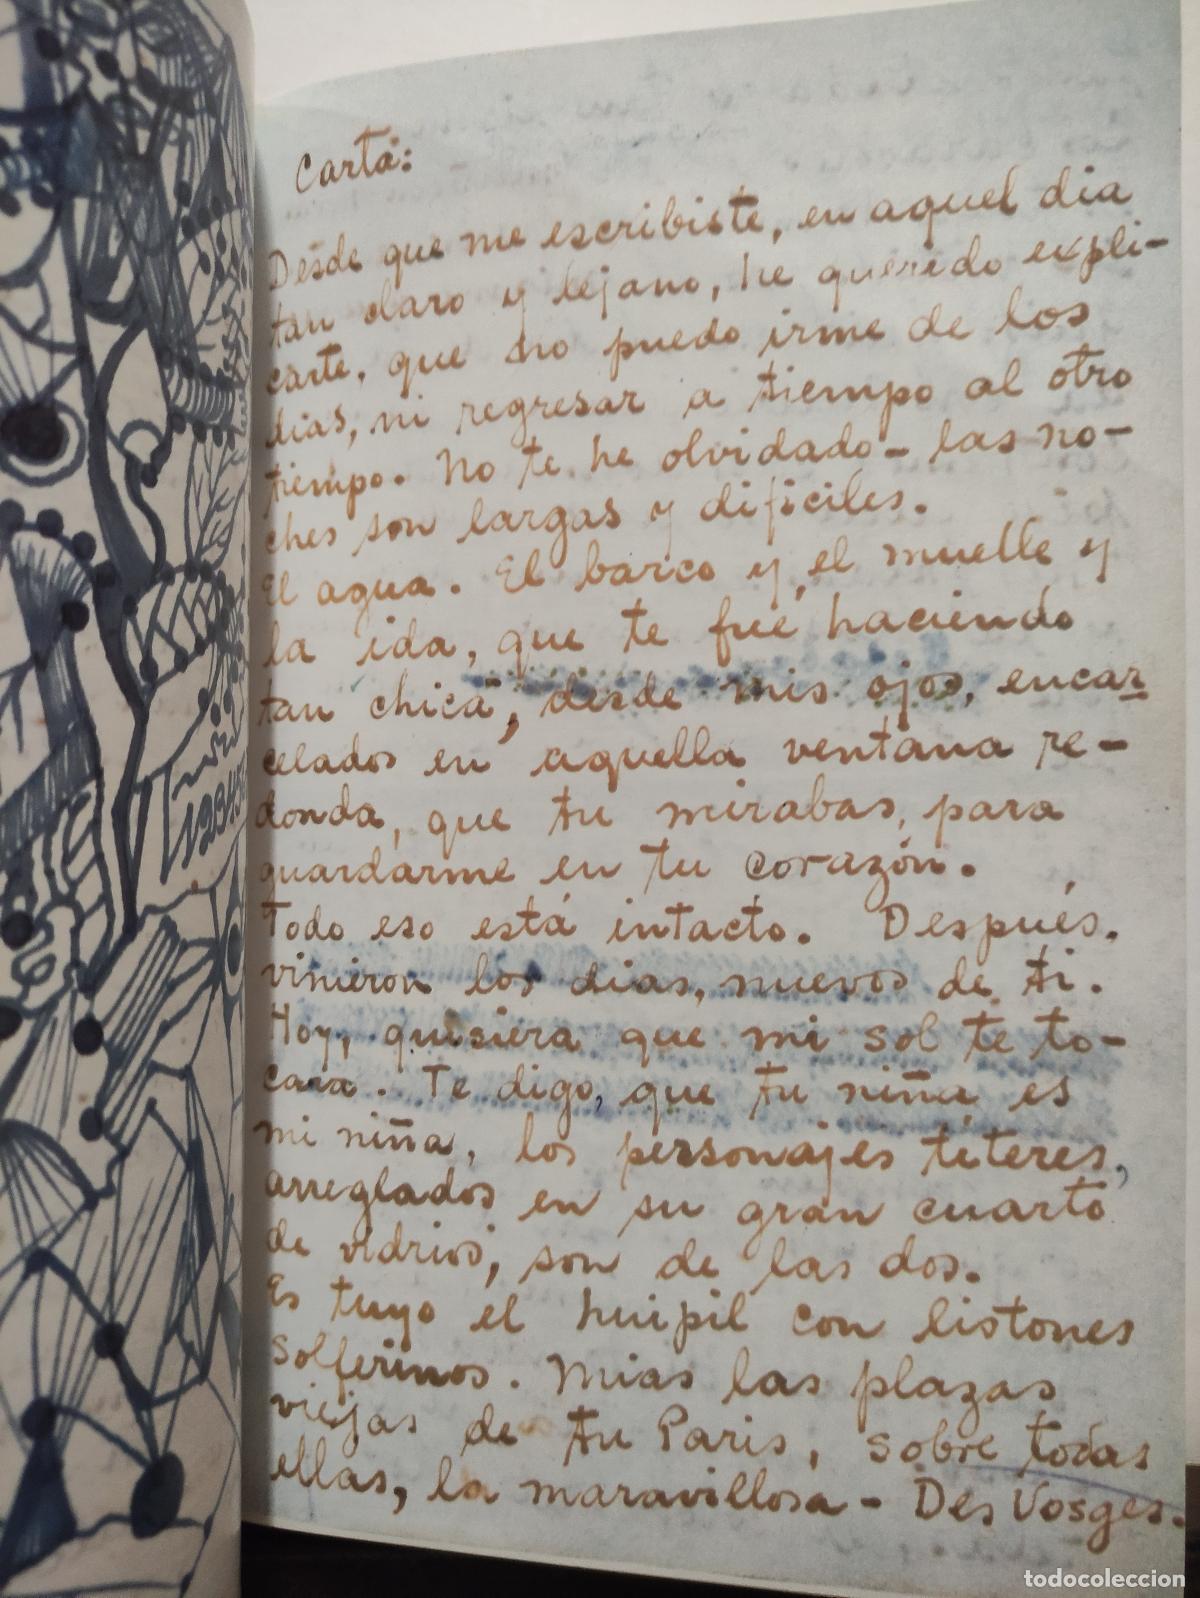 Carta:
Desde que me escribiste, en aquel dia
tan claro y lejano, he querido expli-
carte, que no puedo irme de los
dias, ni regresar a tiempo al otro
tiempo. No te he olvidado - las no-
ches son largas y dificiles.
El agua. El barco y el muelle y
la ida, que te fué haciendo
tan chica, desde mis ojos, encar-
celados en aquella ventana re-
donda, que tu mirabas, para
guardarme en tu corazón.
Todo eso está intacto. Después,
vinieron los dias, nuevos de ti.
Hoy, quisiera que mi sol te to-
cara. Te digo, que tu niña es
mi niña, los personajes títeres,
arreglados en su gran cuarto
de vidrios, son de las dos.
Es tuyo el huipil con listones
solferinos. Mias las plazas
viejas de tu Paris, sobre todas
ellas, la maravillosa - Des Vosges.
todocoleccion